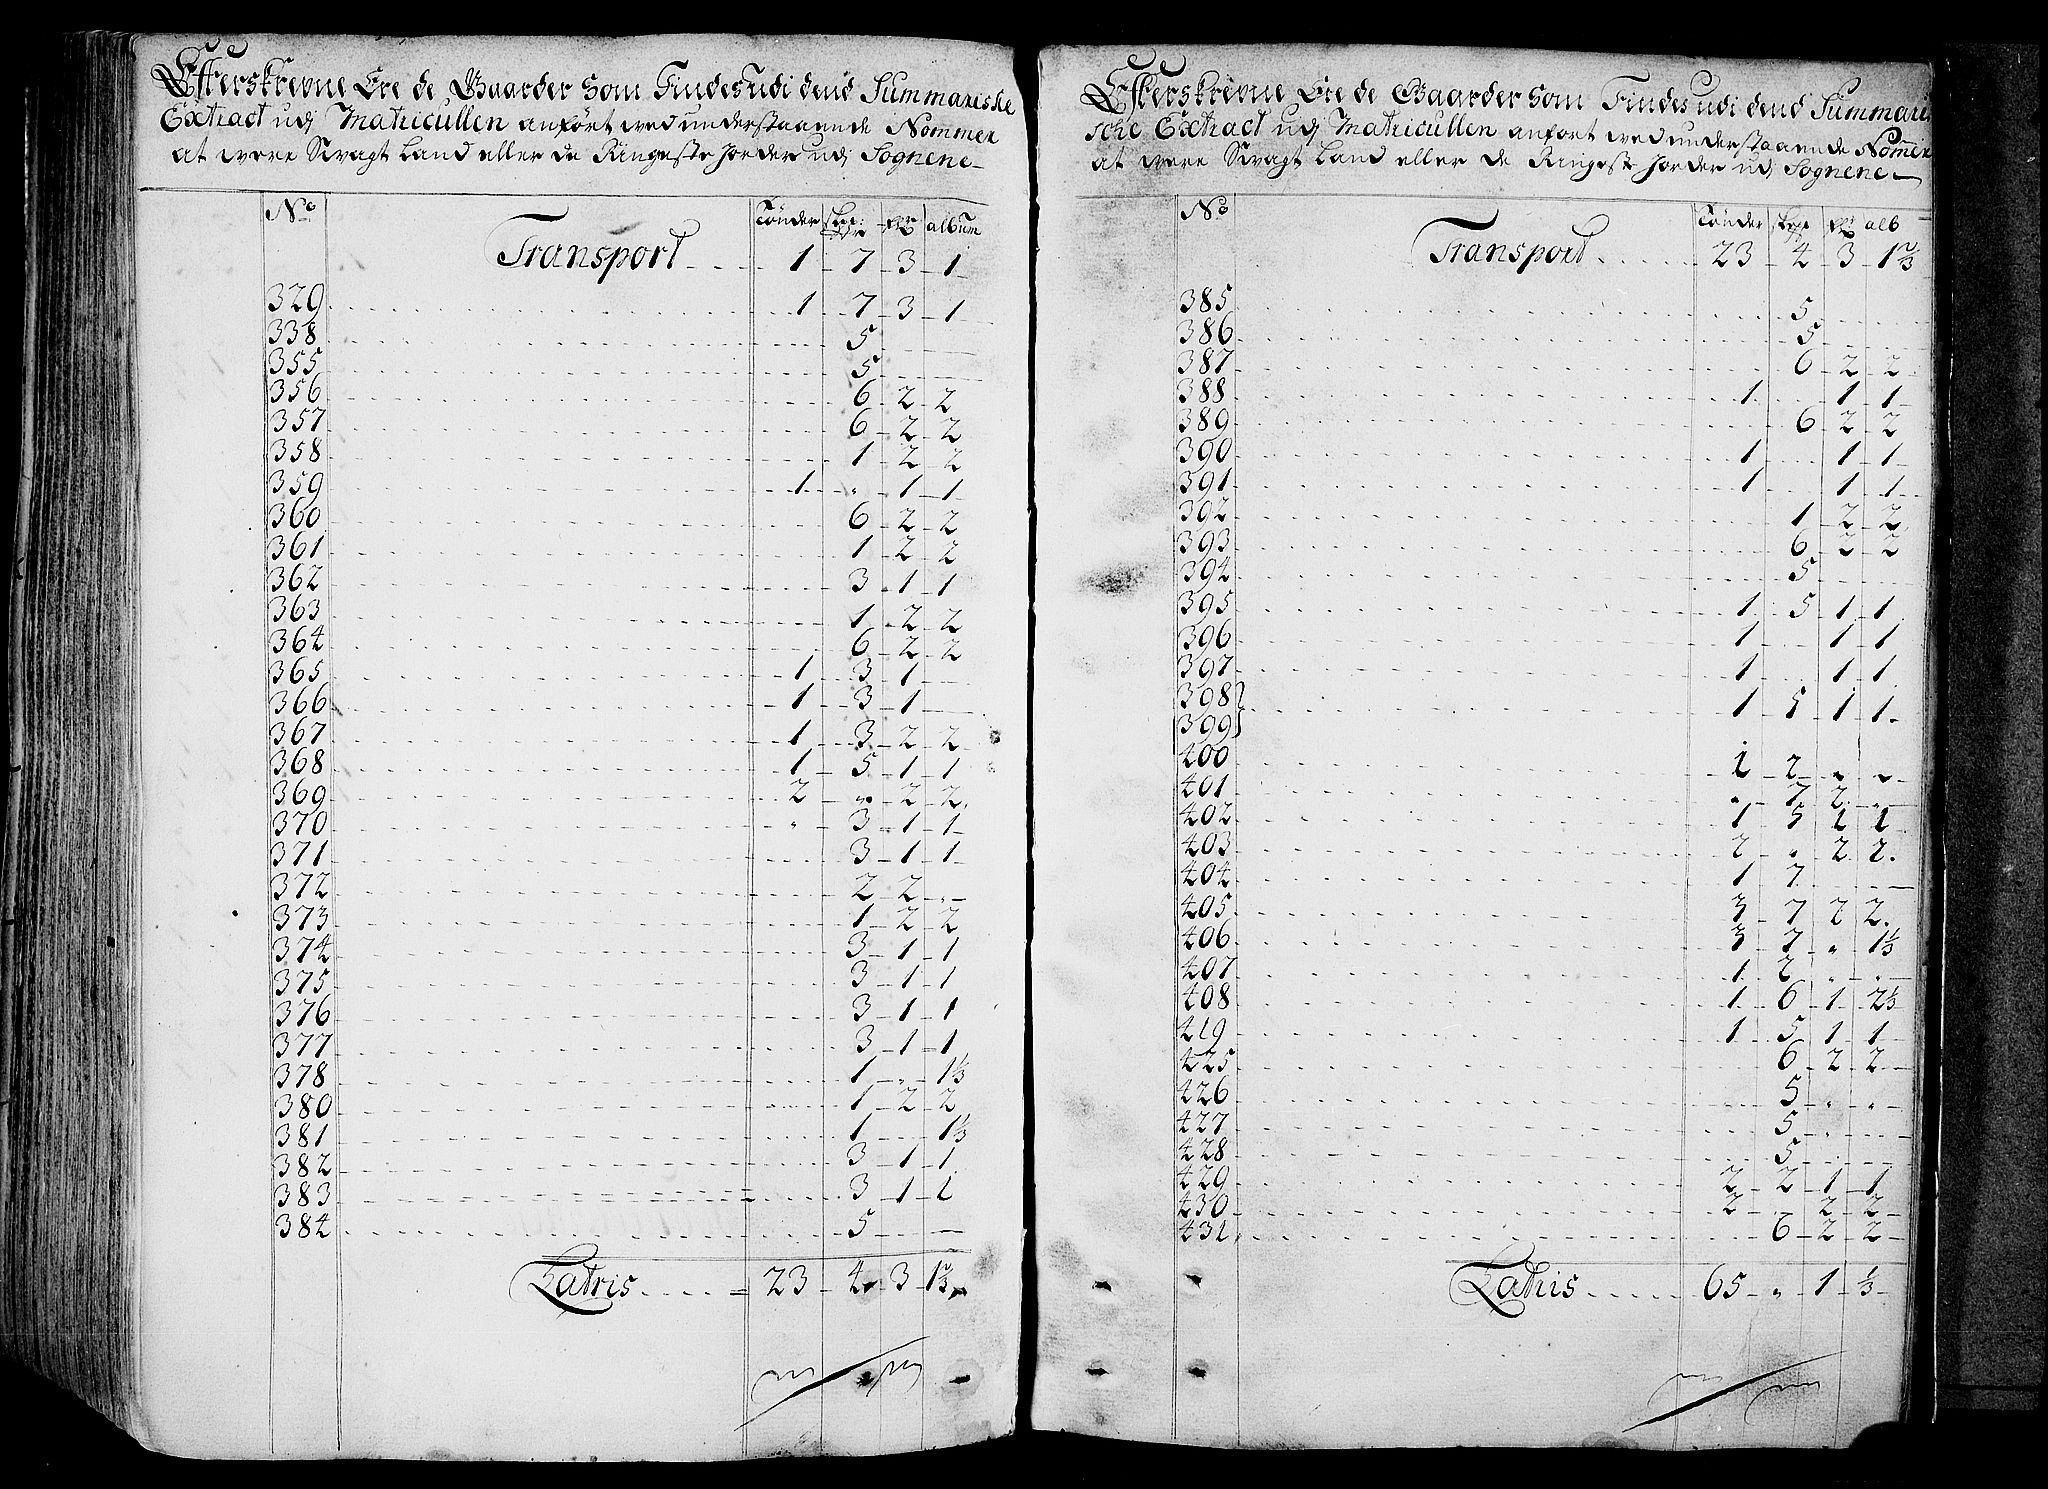 Efterskrevne Ere de Gaarder Som Findes udi dend Summariske
Extract udj Matricullen anfört ved understaaende Nommer
at were Svagt Land eller de Ringeste Jorder udj Sognene
No Tönder album
Transport 1 7 3 1
329 1 7 3 1
338 5
355 5
356 6 2 2
357 6 2 2
358 1 2 2
359 1 " 1 1
360 6 2 2
361 1 2 2
362 3 1 1
363 1 2 2
364 6 2 2
365 1 3 1
366 1 3 1
367 1 3 2 2
368 1 5 1 1
369 2 " 2 2
370 " 3 1 1
371 3 1 1
372 2 2 "
373 1 2 2
374 3 1 1
375 3 1 1
376 3 1 1
377 3 1 1
378 1 " 1⅓
380 1 2 2
381 1 1⅓
382 3 1 1
383 3 1 1
384 5
Latris 23 4 3 1⅔
Efterskrevne Ere de Gaarder Som Findes udi dend Summari
sche Extract udj Matricullen anfort ved understaaende Nomer
at were Svagt Land eller de Ringeste Jorder udj Sognene
No Tönder alb
Transport 23 4 3 1⅔
385 5
386 5
387 6 2 2
388 1 1 1
389 6 2 2
390 1 1 1
391 1 1 1
392 1 2 2
393 6 2 2
394 5
395 1 5 1 1
396 1 1 1
397 1 1 1
398
399 1 5 1 1
400 1 2 " "
401 " 7 2 "
402 1 5 1 1
403 2 " 2 2
404 1 7
405 3 7 2 2
406 3 7 " 1⅓
407 1 2 " "
408 1 6 1 2⅓
419 1 5 1 1
425 6 2 2
426 5 " "
427 5 "
428 5
429 2 2 1 1
430 2 2 2
431 6 2 2
Lathis 65 " 1 ⅓